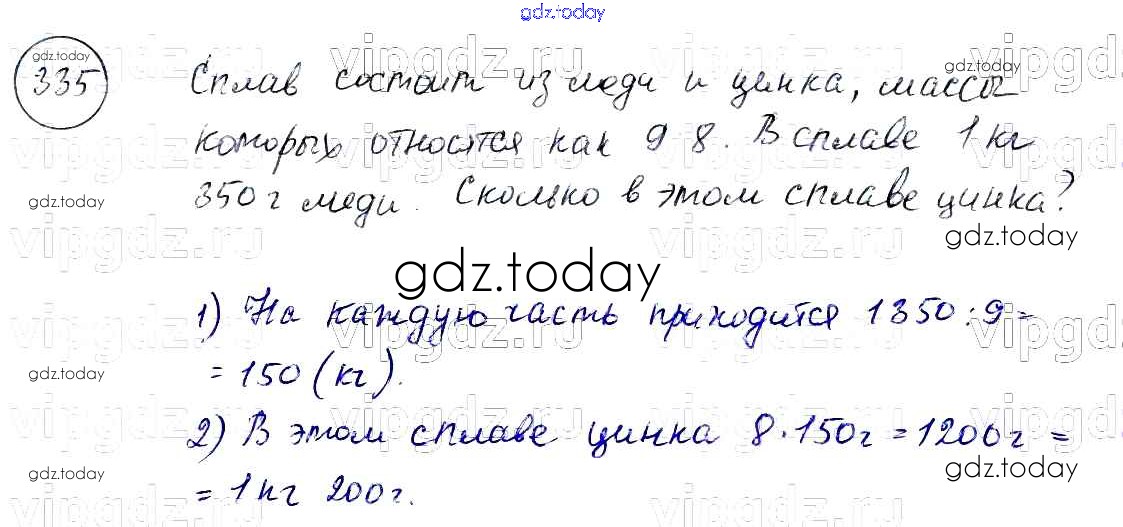 gdz.today
335
Сплав состоит из меди и цинка, массы
которых относятся как 9 8. В сплаве 1 кг
350 г меди. Сколько в этом сплаве цинка?
gdz.today
1) На каждую часть приходится 1350 : 9 =
= 150 (кг).
2) В этом сплаве цинка 8 · 150г = 1200г =
= 1 кг 200 г.
gdz.today
vipgdz.ru